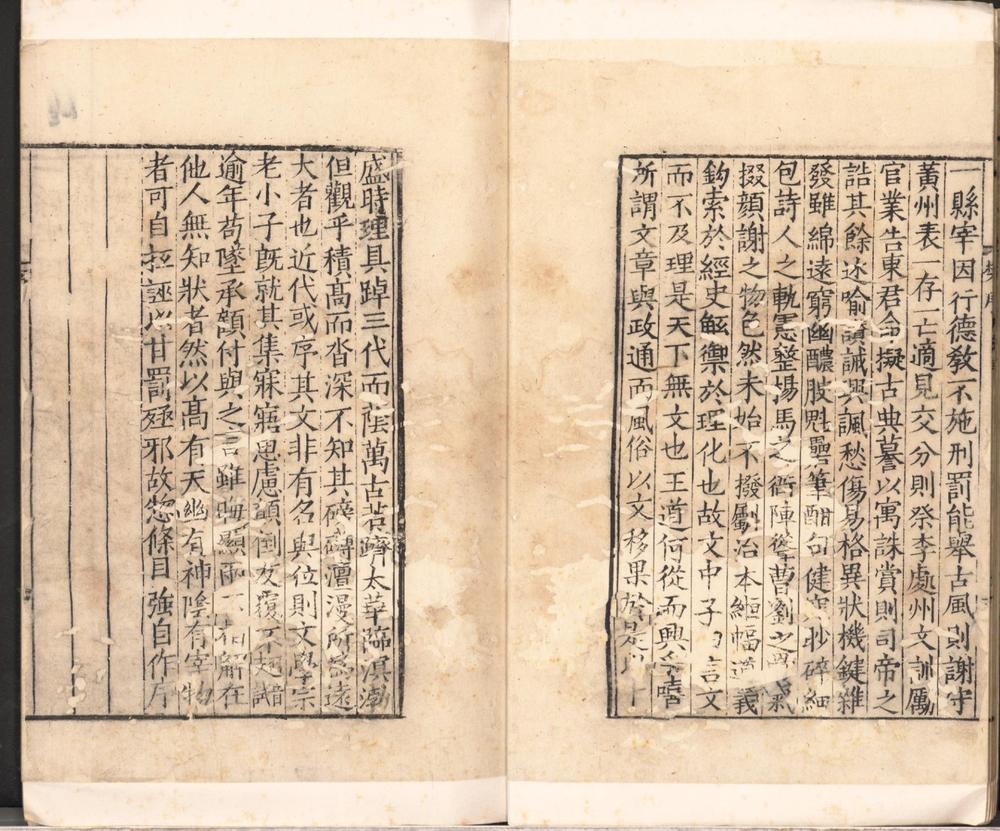 一縣宰因行德敎不施刑罰能舉古風則謝守
黃州表一存一亡適見交分則祭李處州文訓勵
官業告東君命擬古典謩以寓誅賞則司帝之
誥其餘述喻讚誡興諷愁傷易格異狀機鍵雜
發雖綿遠窮幽醲腴魁礨筆酣句健窕眇碎細
包詩人之軌憲整揚馬之衙陣聳曹劉之骨氣
掇顏謝之物色然未始不撥劚治本縆幅道義
鉤索於經史觝禦於理化也故文中子曰言文
而不及理是天下無文也王道何從而興乎嘻
所謂文章與政通而風俗以文移果於是以卜
盛時理具踔三代而蔭萬古若躋太華臨溟渤
但觀乎積高而沓深不知其磅礴澶漫所爲遠
大者也近代或序其文非有名與位則文學宗
老小子旣就其集寐寤思慮顚倒反覆不翅
逾年苟墜承顔付與之言雖晦顯兩不相解在
他人無知狀者然以高有天幽有神陰有宰物
者可自抂誣以甘罰殛邪故惣條目強自作序